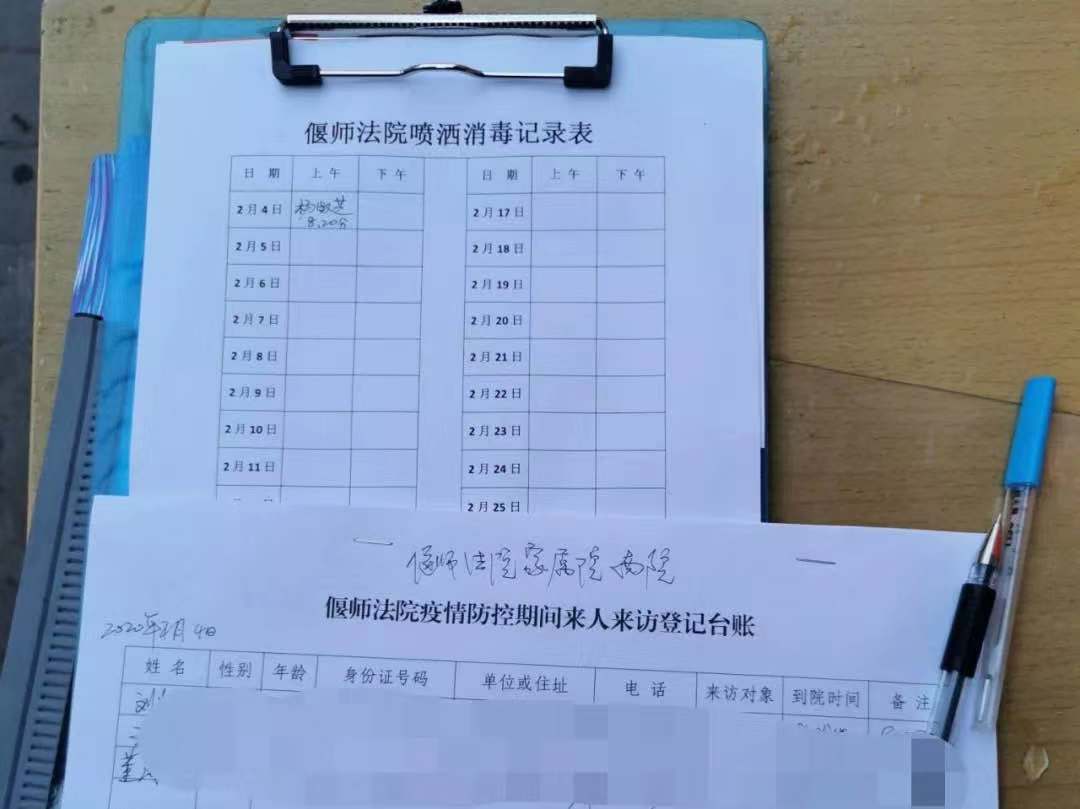 偃师法院喷洒消毒记录表
日 期 上 午 下 午 日 期 上 午 下 午
2 月 4 日 8.20分 2 月 17 日
2 月 5 日 2 月 18 日
2 月 6 日 2 月 19 日
2 月 7 日 2 月 20 日
2 月 8 日 2 月 21 日
2 月 9 日 2 月 22 日
2 月 10 日 2 月 23 日
2 月 11 日 2 月 24 日
2 月 25 日
偃师法院家属院南院
偃师法院疫情防控期间来人来访登记台账
2020年2月4日
姓 名 性别 年龄 身份证号码 单位或住址 电 话 来访对象 到院时间 备 注
刘
董